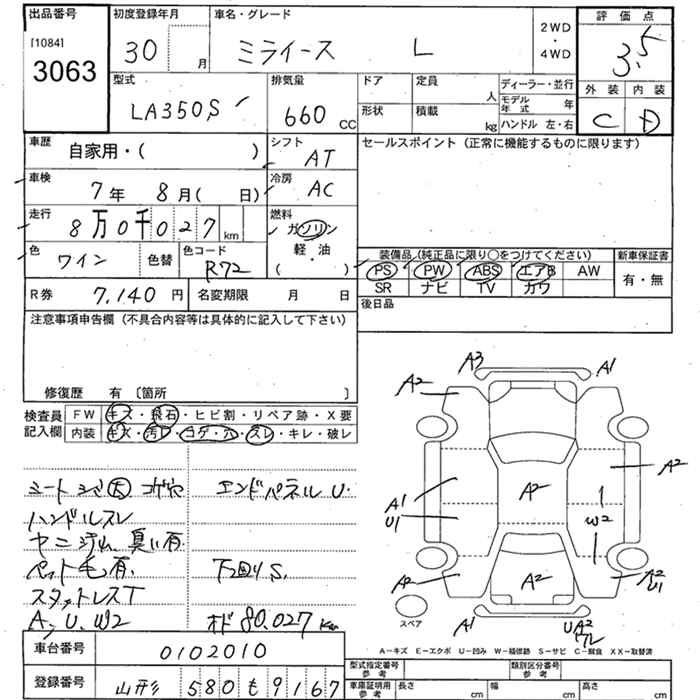 出品番号
[1084]
3063
初度登録年月
30 月
車名・グレード
ミライース L
2WD
・
4WD
評価点
3.5
外装 内装
C D
型式
LA350S
排気量
660 CC
ドア
定員
人
形状
積載
kg
ディーラー・並行
モデル年式 年
ハンドル 左・右
車歴
自家用・( )
シフト
AT
セールスポイント (正常に機能するものに限ります)
車検
7年 8月( 日)
冷房
AC
走行
8万0千027km
燃料
ガソリン
軽・油
( )
色
ワイン
色替
色コード
R72
装備品 (純正品に限り○をつけてください)
PS PW ABS エアB AW
SR ナビ TV カワ
新車保証書
有・無
R券 7,140円
名変期限 月 日
後日品
注意事項申告欄 (不具合内容等は具体的に記入して下さい)
修復歴 有 〔箇所 〕
検査員記入欄
FW キズ・飛石・ヒビ割・リペア跡・X要
内装 キズ・汚レ・コゲ・穴・スレ・キレ・破レ
シートシミ大 コゲ穴
ハンドルスレ
ヤニ汚レ、臭い有
ペット毛有
スタットレスT
A、U、W2
エンドパネル U.
下廻り S.
オド 80,027Km
A3
A1
A2
A2
A1
U1
A2
W2
A2
A2
A2
U1
A1
スペア
A-キズ E-エクボ U-凹み W-補修跡 S-サビ C-腐食 XX-取替済
車台番号
0102010
登録番号
山形 580 も 9167
型式指定番号
参考
類別区分番号
参考
車庫証明用
参考
長さ cm
幅 cm
高さ cm